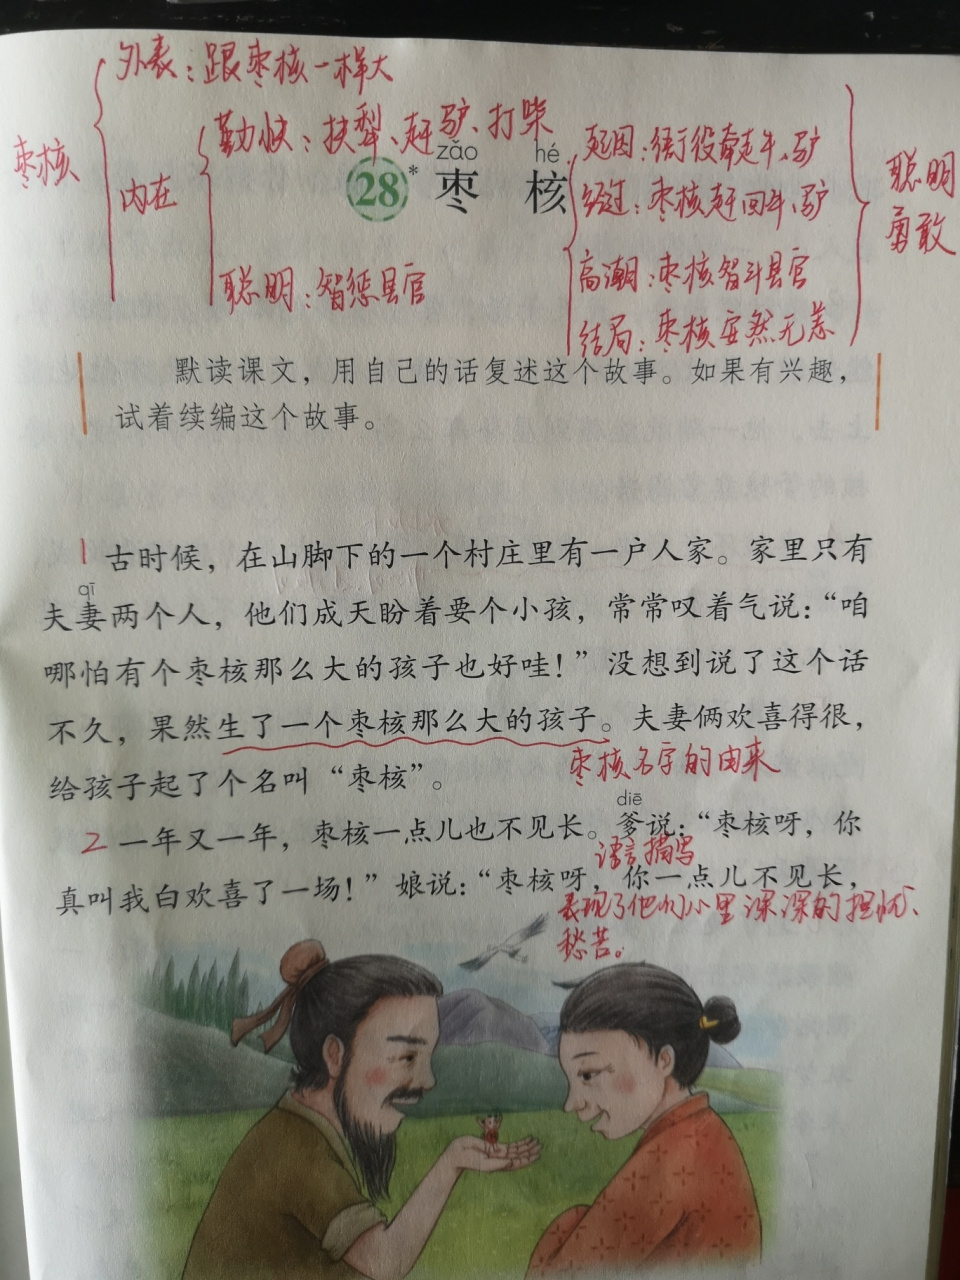 外表：跟枣核一样大
枣核
勤快：扶犁、赶驴、打柴
内在
聪明：智惩县官
起因：衙役牵走牛、驴
经过：枣核赶回牛、驴
高潮：枣核智斗县官
结局：枣核安然无恙
聪明
勇敢
zǎo hé
28* 枣 核
默读课文，用自己的话复述这个故事。如果有兴趣，
试着续编这个故事。
1 古时候，在山脚下的一个村庄里有一户人家。家里只有
qī
夫妻两个人，他们成天盼着要个小孩，常常叹着气说：“咱
哪怕有个枣核那么大的孩子也好哇！”没想到说了这个话
不久，果然生了一个枣核那么大的孩子。夫妻俩欢喜得很，
枣核名字的由来
给孩子起了个名叫“枣核”。
diē
2 一年又一年，枣核一点儿也不见长。爹说：“枣核呀，你
语言描写
真叫我白欢喜了一场！”娘说：“枣核呀，你一点儿不见长，
表现了他们心里深深的担忧、
愁苦。